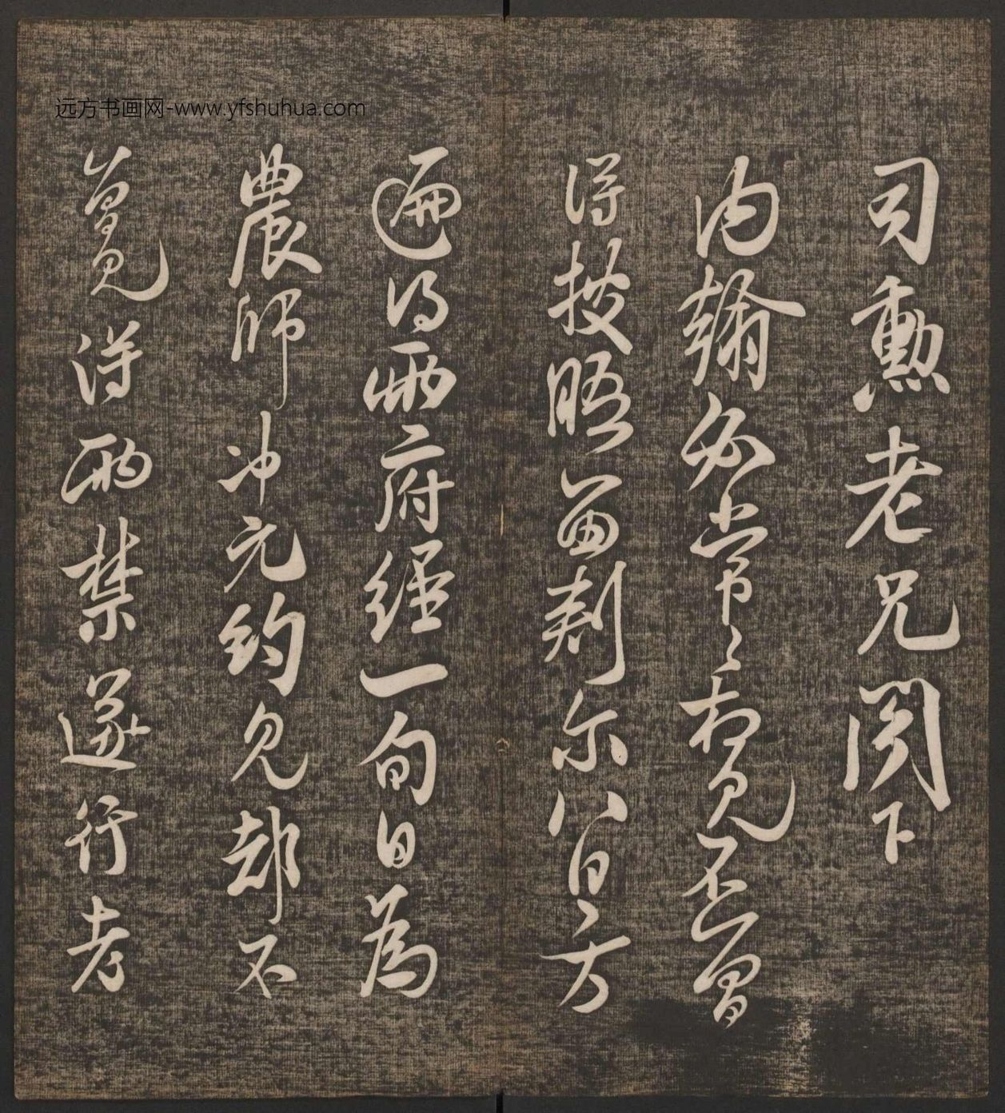 远方书画网-www.yfshuhua.com
司勳老兄閣下
内翰必常々相見不曾
得披晤留刺尔八日方
遍得兩府經一旬日為
農師冲元約見却不
曾見得兩禁遂行